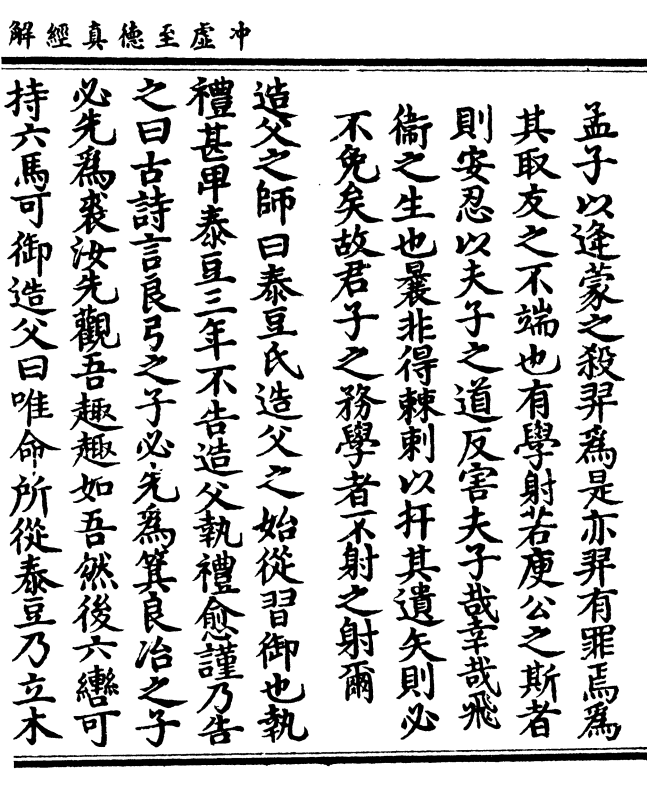 冲虛至德真經解
孟子以逄蒙之殺羿爲是亦羿有罪焉爲
其取友之不端也有學射若庾公之斯者
則安忍以夫子之道反害夫子哉幸哉飛
衞之生也曩非得棘刺以扞其遺矢則必
不免矣故君子之務學者不射之射爾
造父之師曰泰豆氏造父之始從習御也執
禮甚卑泰豆三年不告造父執禮愈謹乃告
之曰古詩言良弓之子必先爲箕良冶之子
必先爲裘汝先觀吾趣趣如吾然後六轡可
持六馬可御造父曰唯命所從泰豆乃立木